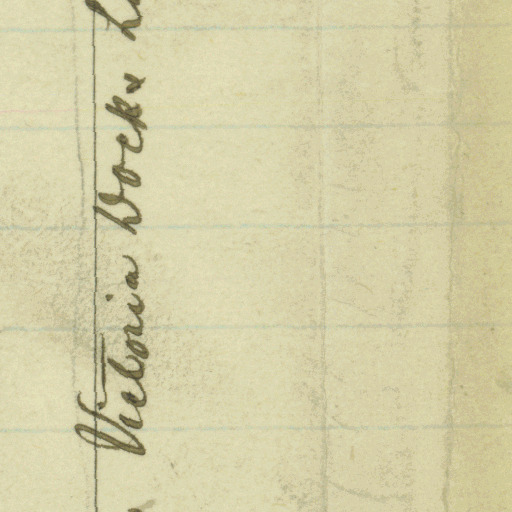 Victoria Docks